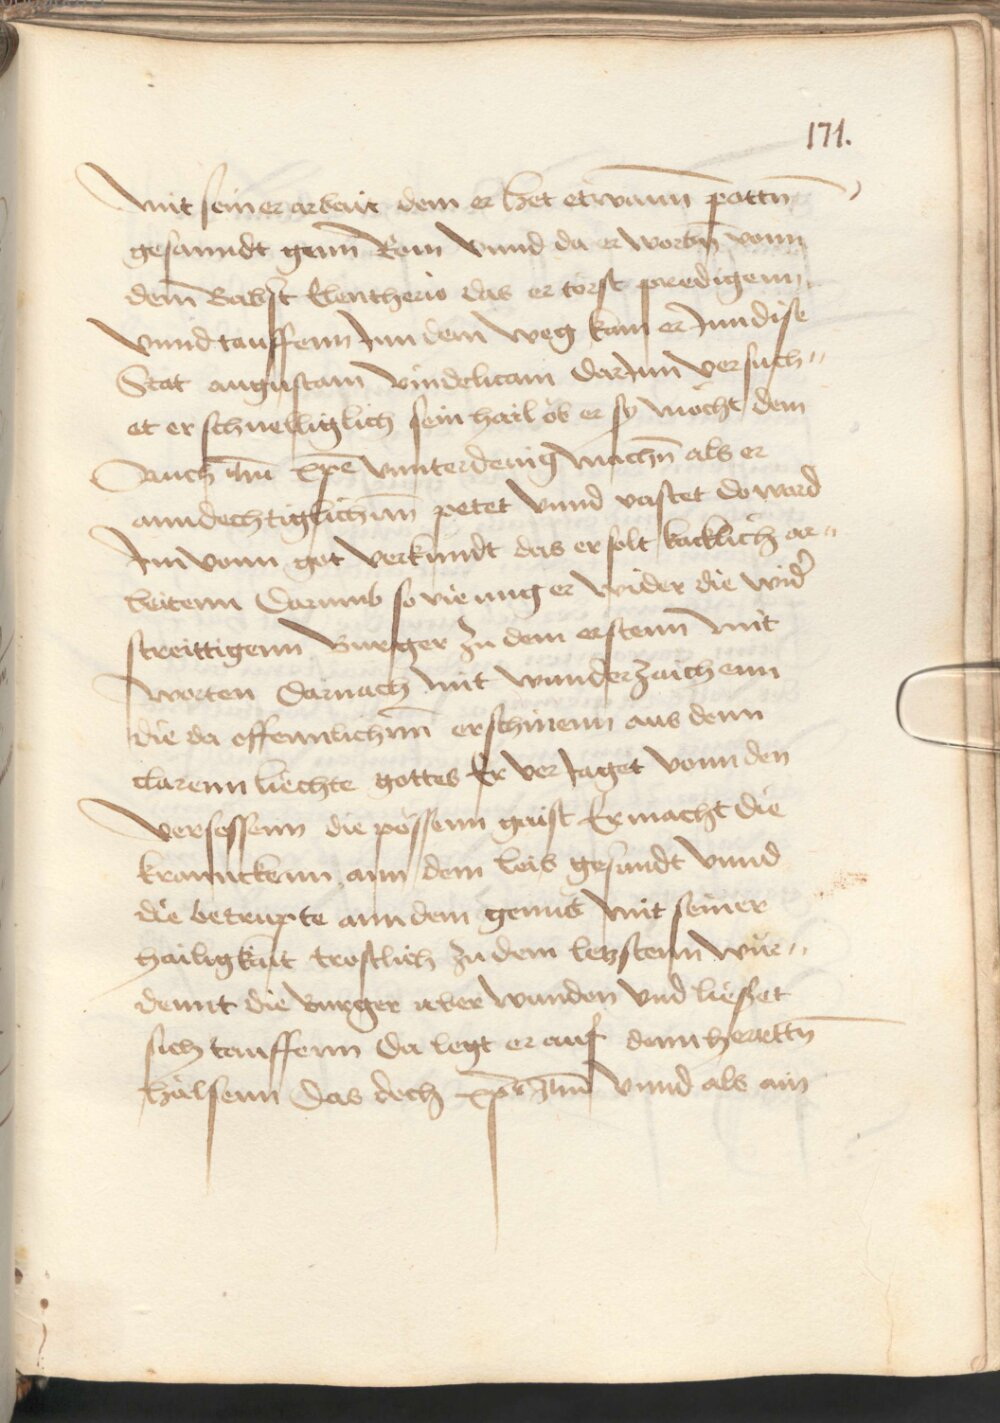 171.
mit seiner arbait dem er het etwann pottn
gesanndt genn Rom Vnnd da er worbn vonn
dem Babst Eleutherio das er torst predigenn
vnnd tauffenn Inn dem weg kam er Inn dise
Stat augustam vindelicam darInn versuch„
et er schnelliglich sein hail ob er sy mocht dem
Joch ihu xpe vnnterdenig machn als er
anndechtiglichnn petet vnnd vastet do ward
Im vonn got verkundt das er solt kecklich ar„
beitenn Darumb so vieng er wider die wid
streittigenn Burger zu dem erstenn mit
worten Darnach mit wunderzaichenn
die da offennlichnn erschinenn aus denn
clarenn liechte gottes Er ver Jaget vonn den
versessenn die possenn gaist Er macht die
kranckenn ann dem leib gesundt vnnd
die betrupte ann dem gemut mit seiner
hailigkait trostlich zu dem letzstenn wur„
dennt die Burger vberwunden vnd liesset
sich tauffenn Da legt er auf denn herttn
halsenn das Joch xpi Ihu vnnd als ain